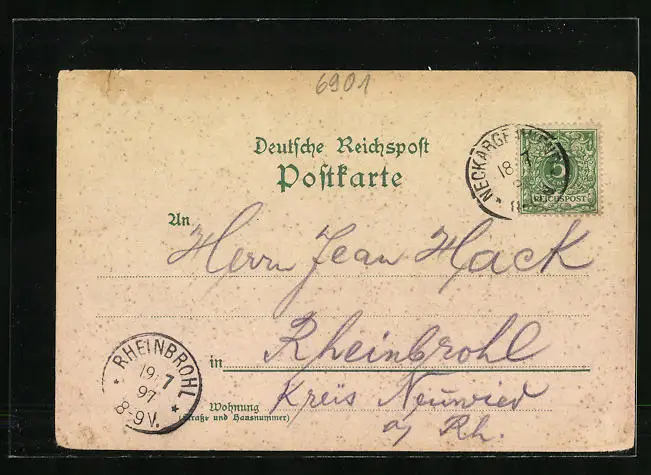 6901
Deutsche Reichspost
Postkarte
NECKARGEMUEND
18 7
5
REICHSPOST
An
Herrn Jean Hack
in Rheinbrohl
Kreis Neuwied
a/ Rh.
Wohnung
(Straße und Hausnummer)
RHEINBROHL
19 7
97
8-9V.